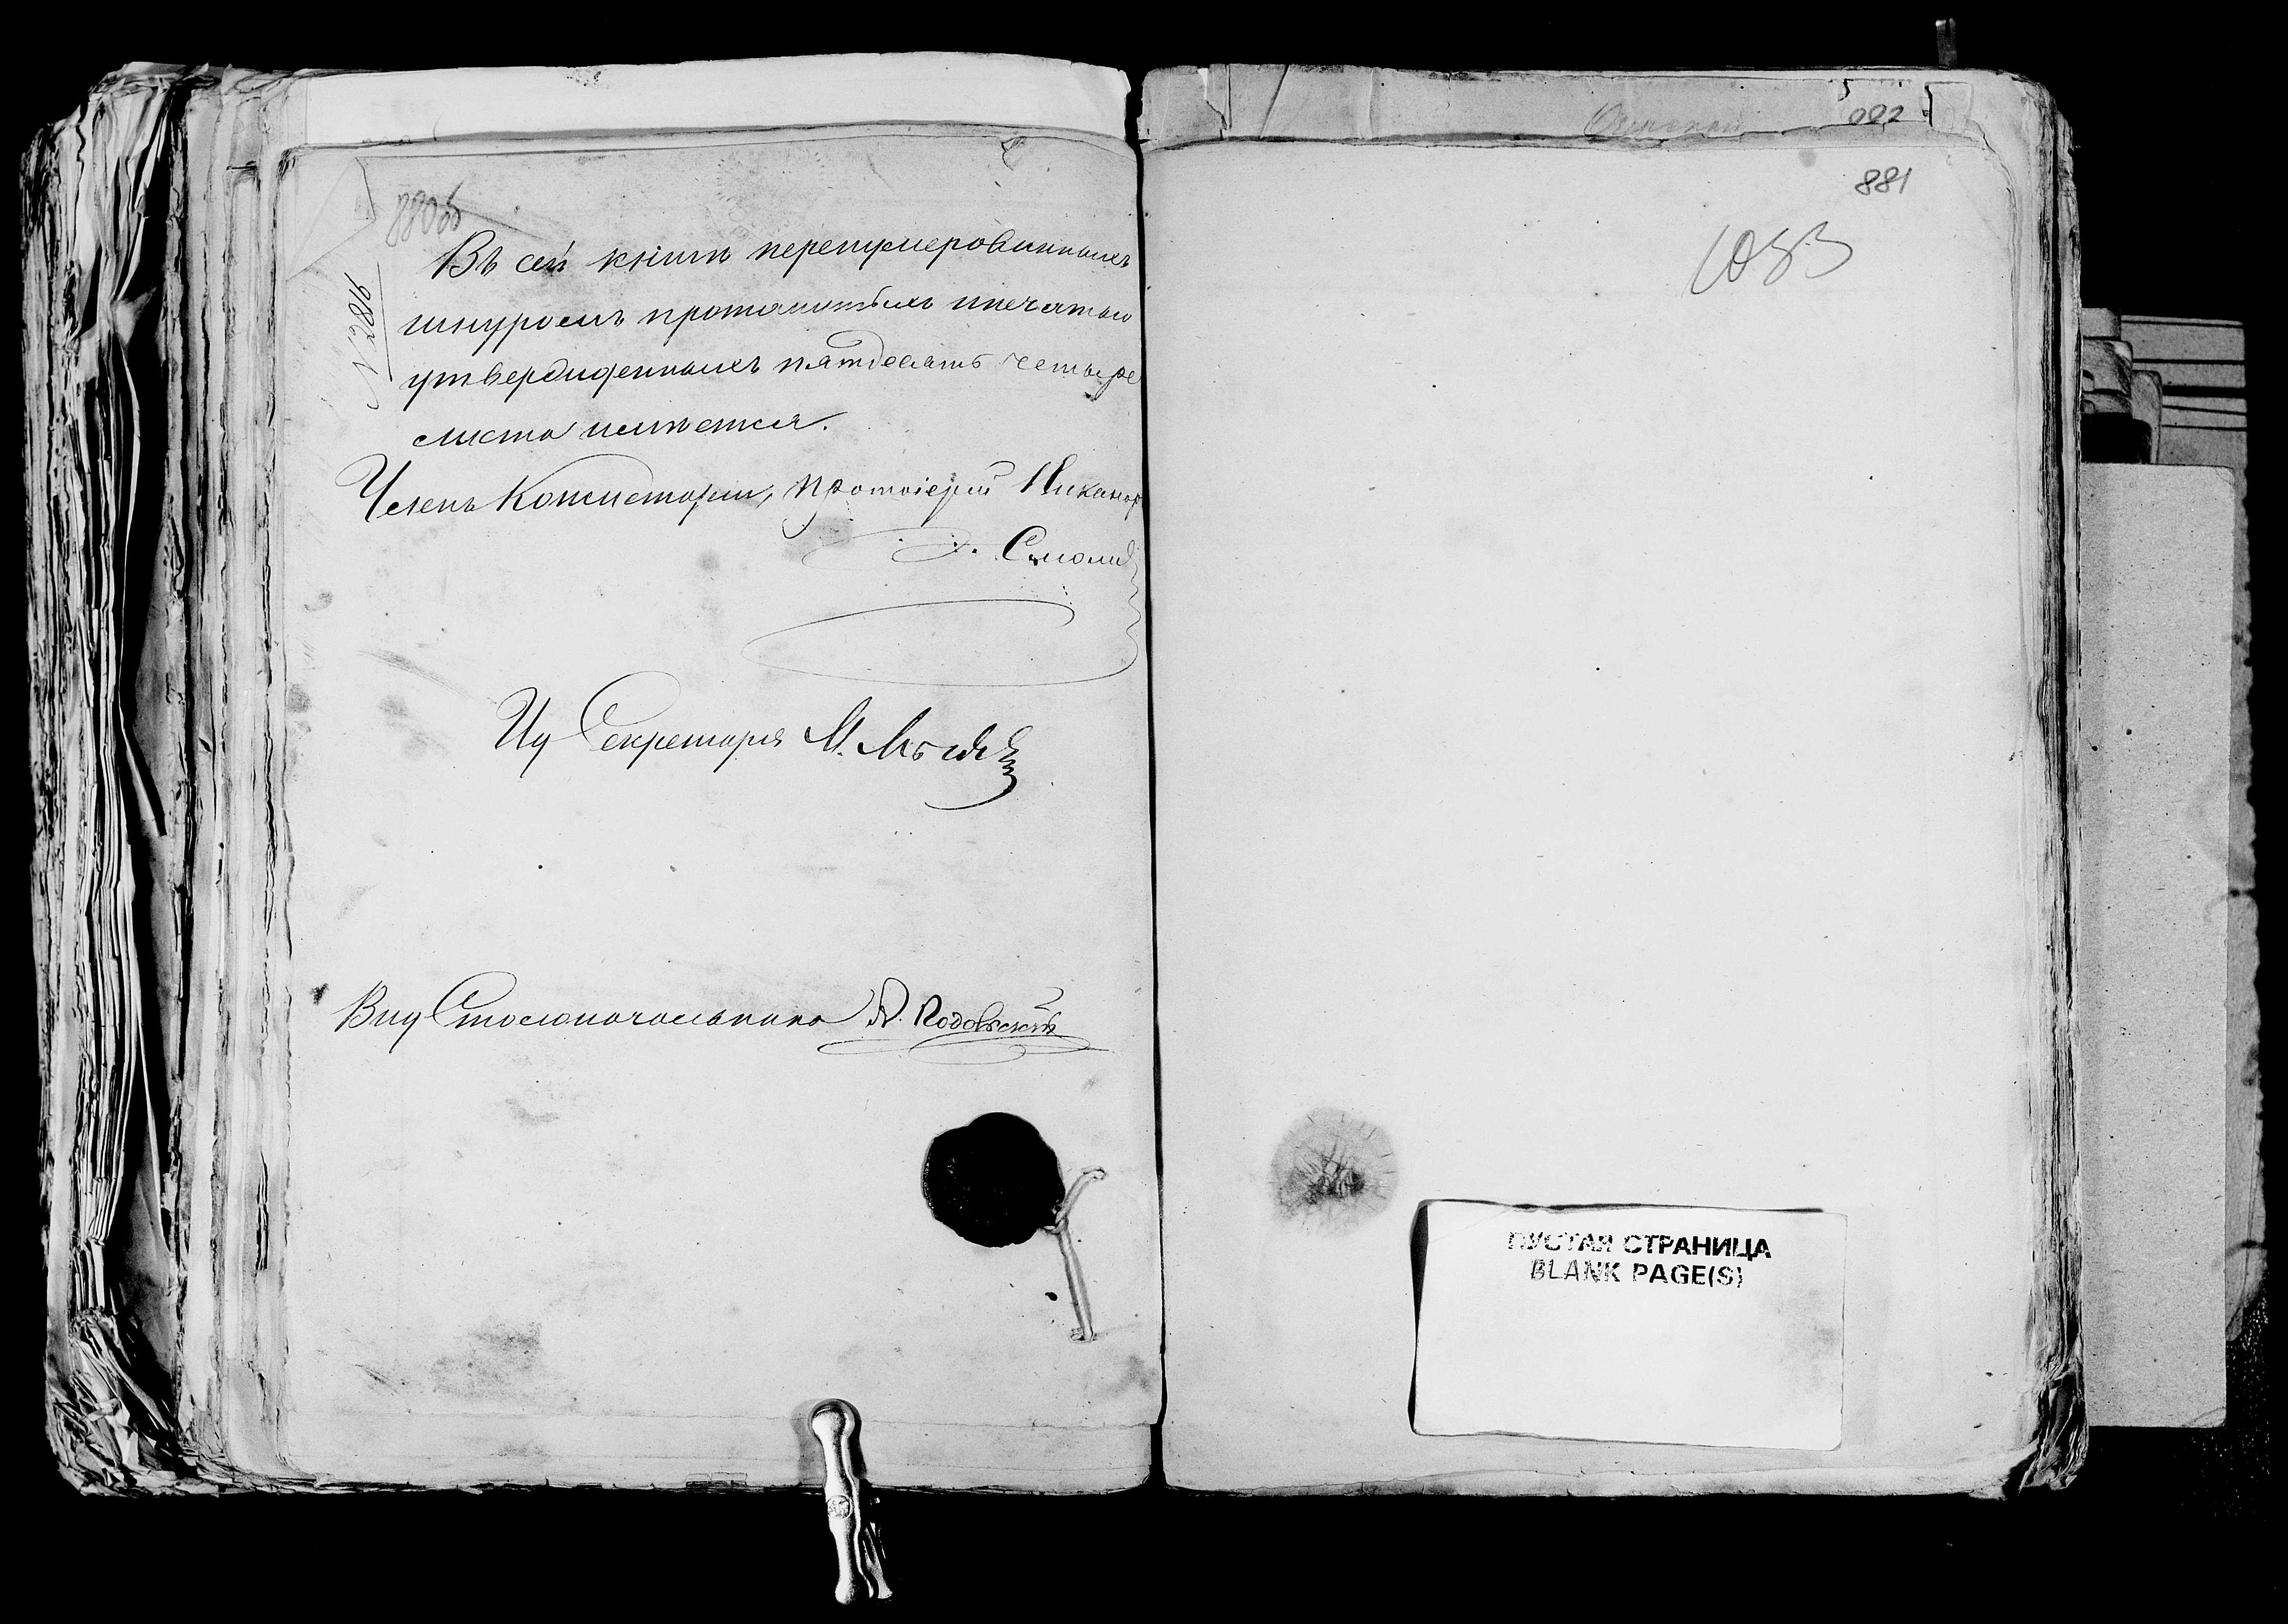 880об
№ 2816
Въ сей книгѣ перенумерованныхъ
шнуромъ прошитыхъ и печатью
утвержденныхъ пятдесятъ четыре
листа имѣется.
Членъ Консисторіи, Протоіерей Никанор
Смолич
Иду Секретаря М.
Вид Столоначальника А.
002
881
1033
ПУСТАЯ СТРАНИЦА
BLANK PAGE(S)